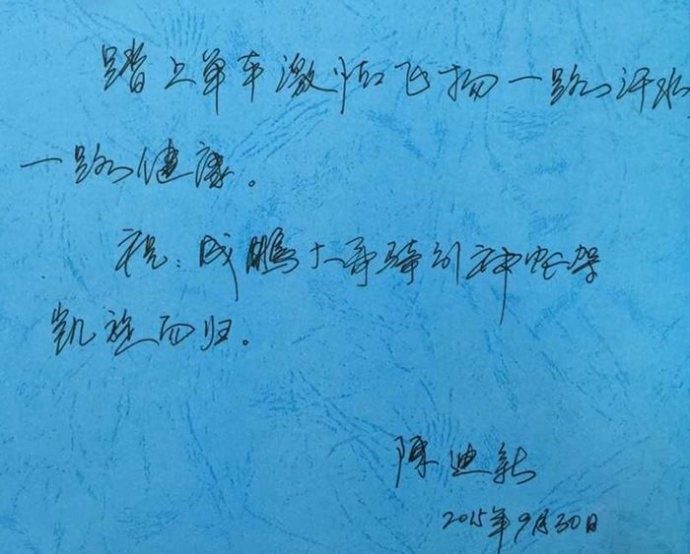 踏上单车激情飞扬一路汗水
一路健康。
祝:成鹏大哥骑到神农架
凯旋而归。
陈迪新
2015年9月30日